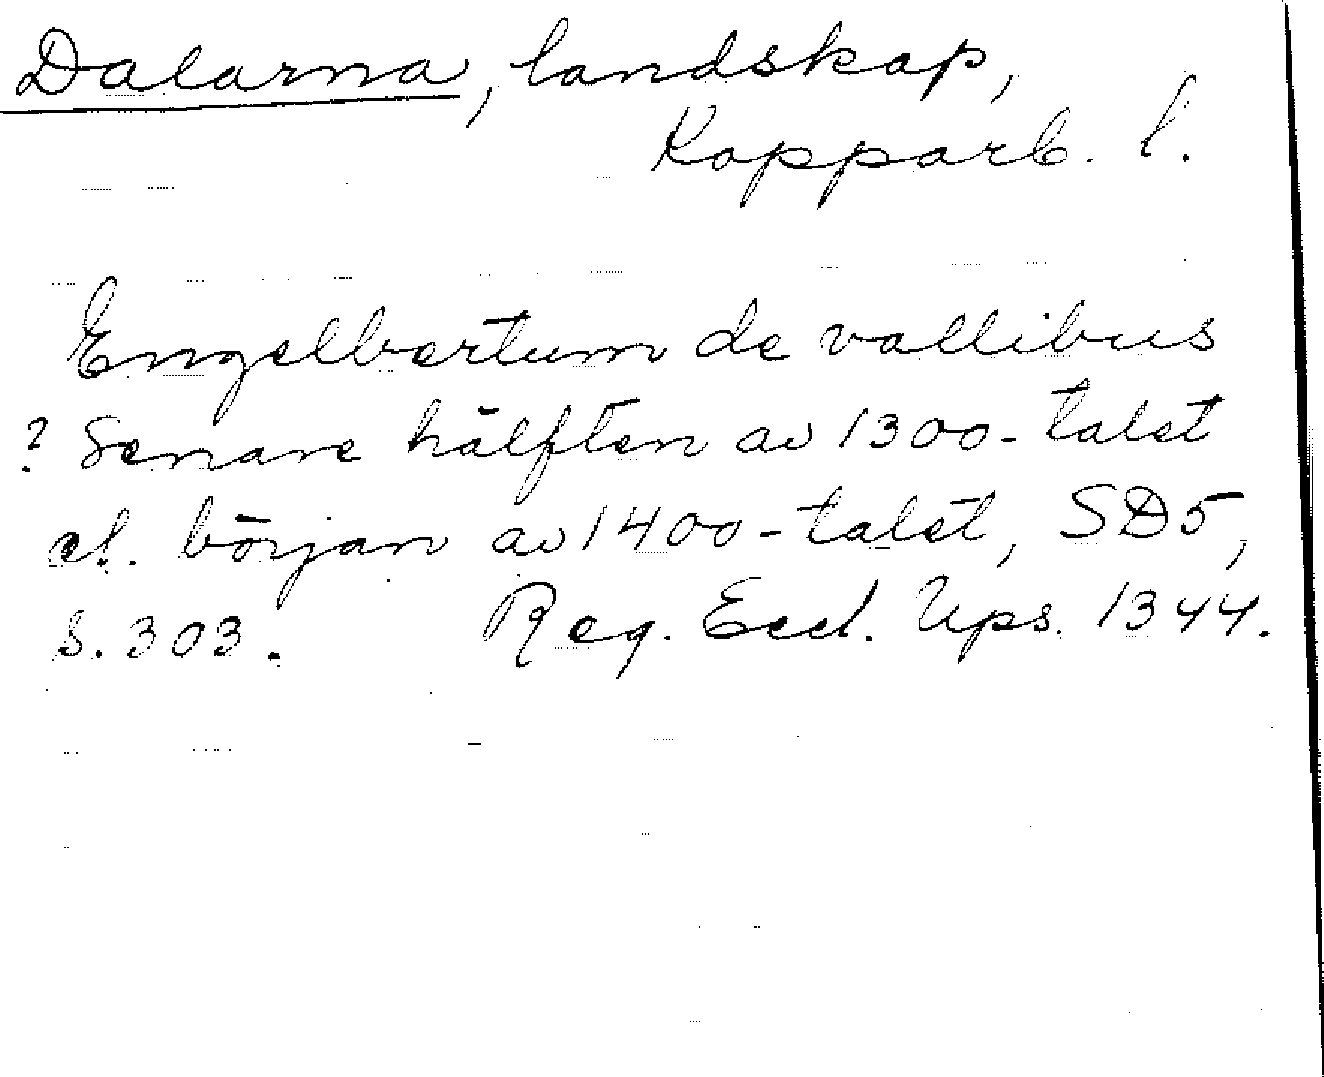 Dalarna, landskap,
Kopparb. l.
Engelbertum de vallibus
? Senare hälften av 1300-talet
el. början av 1400-talet, SD5,
s. 303. Reg. Eccl. Ups. 1344.